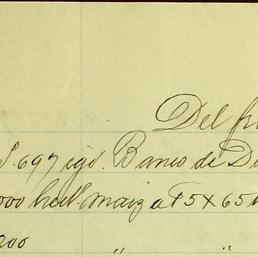 Del
S. 697 igl. Banco de D
000 hect. maiz a $5 x 65
200 " "